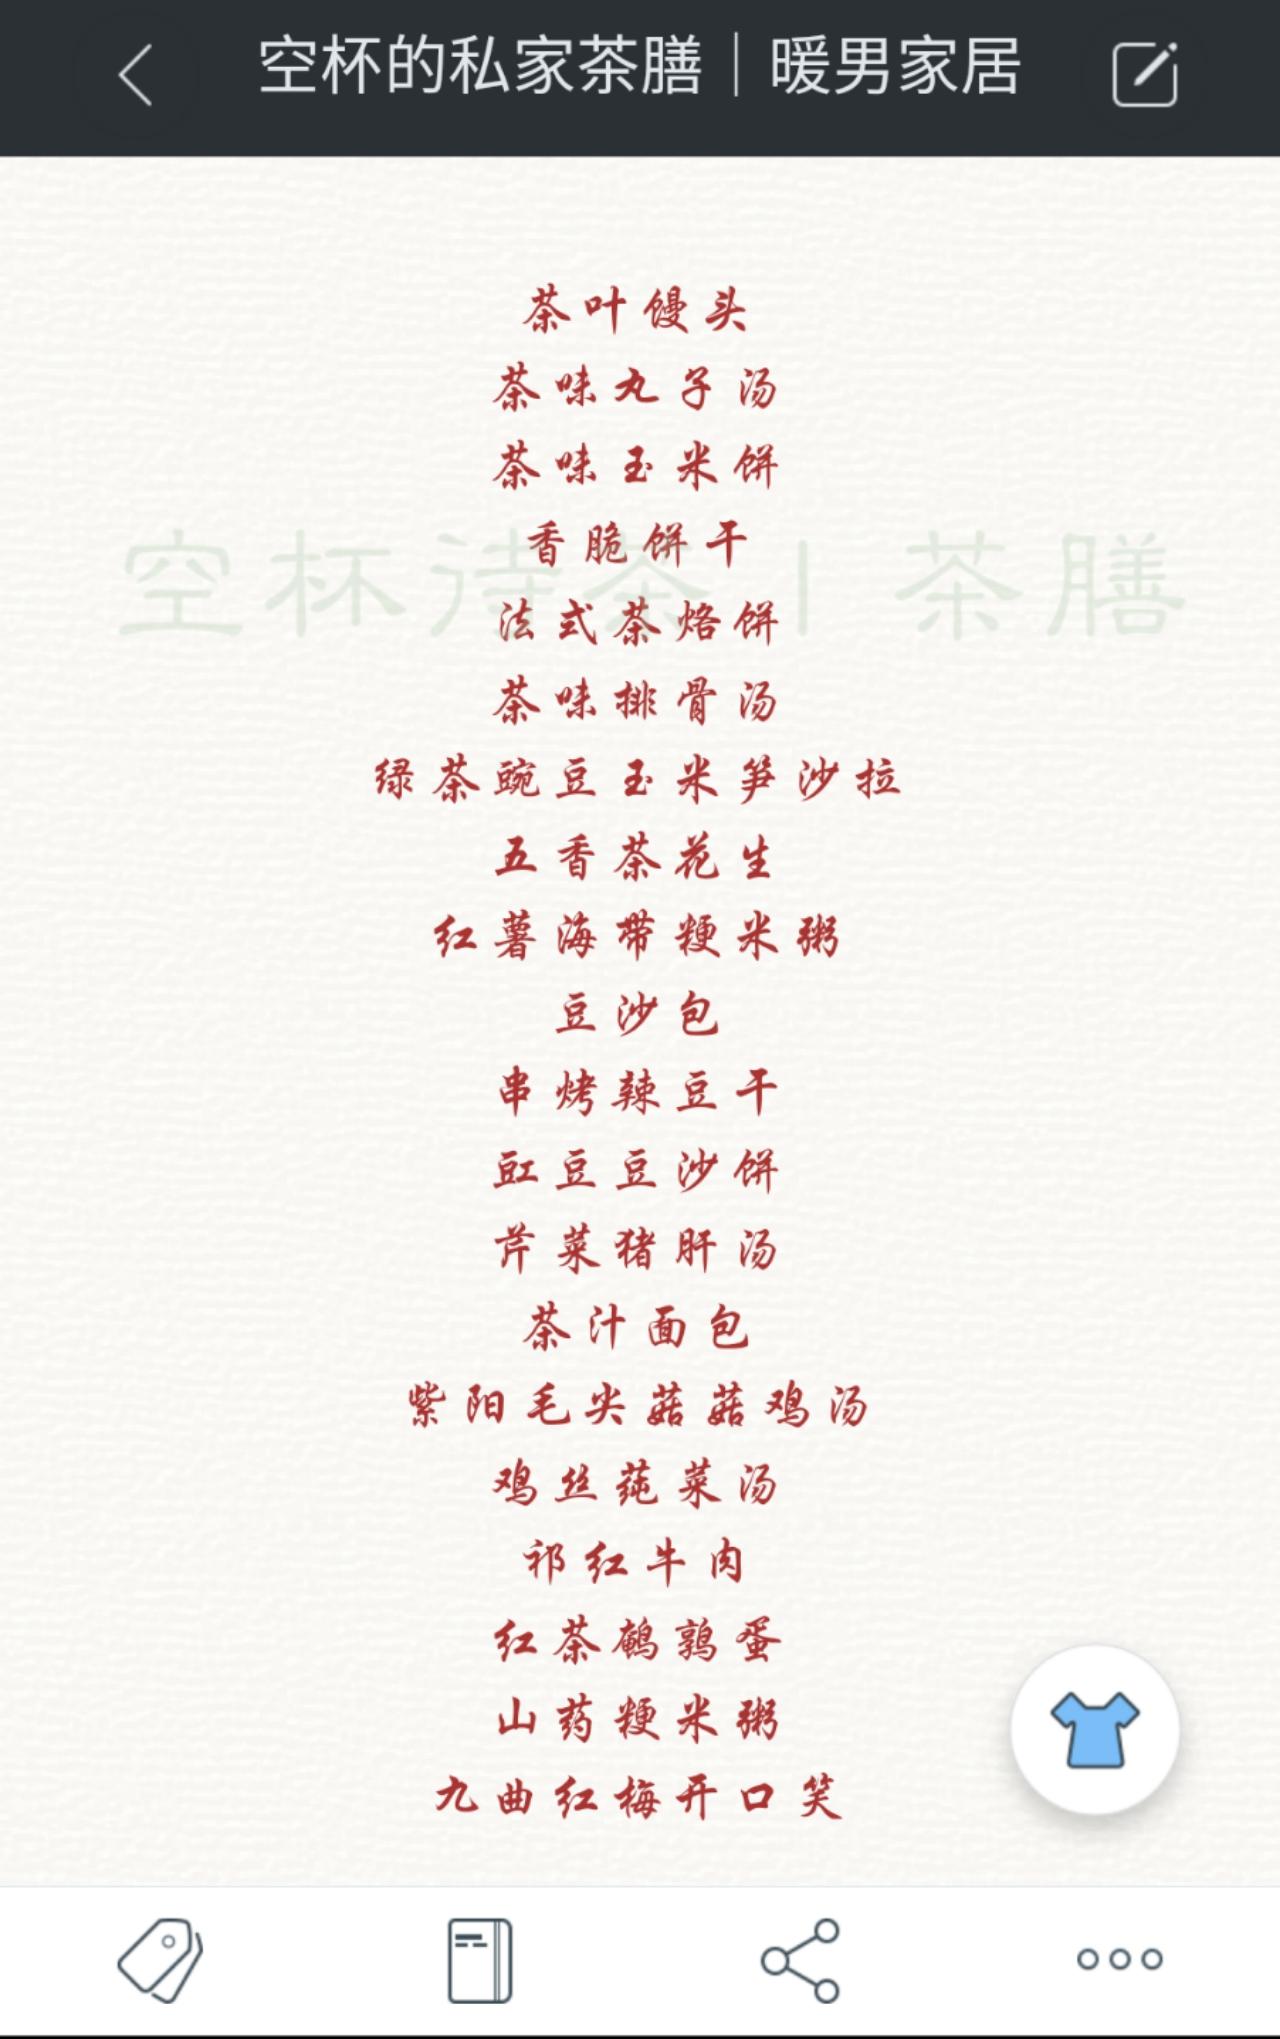 空杯的私家茶膳｜暖男家居
茶叶馒头
茶味丸子汤
茶味玉米饼
香脆饼干
空杯待茶｜茶膳
法式茶烙饼
茶味排骨汤
绿茶豌豆玉米笋沙拉
五香茶花生
红薯海带粳米粥
豆沙包
串烤辣豆干
豇豆豆沙饼
芹菜猪肝汤
茶汁面包
紫阳毛尖菇菇鸡汤
鸡丝莼菜汤
祁红牛肉
红茶鹌鹑蛋
山药粳米粥
九曲红梅开口笑